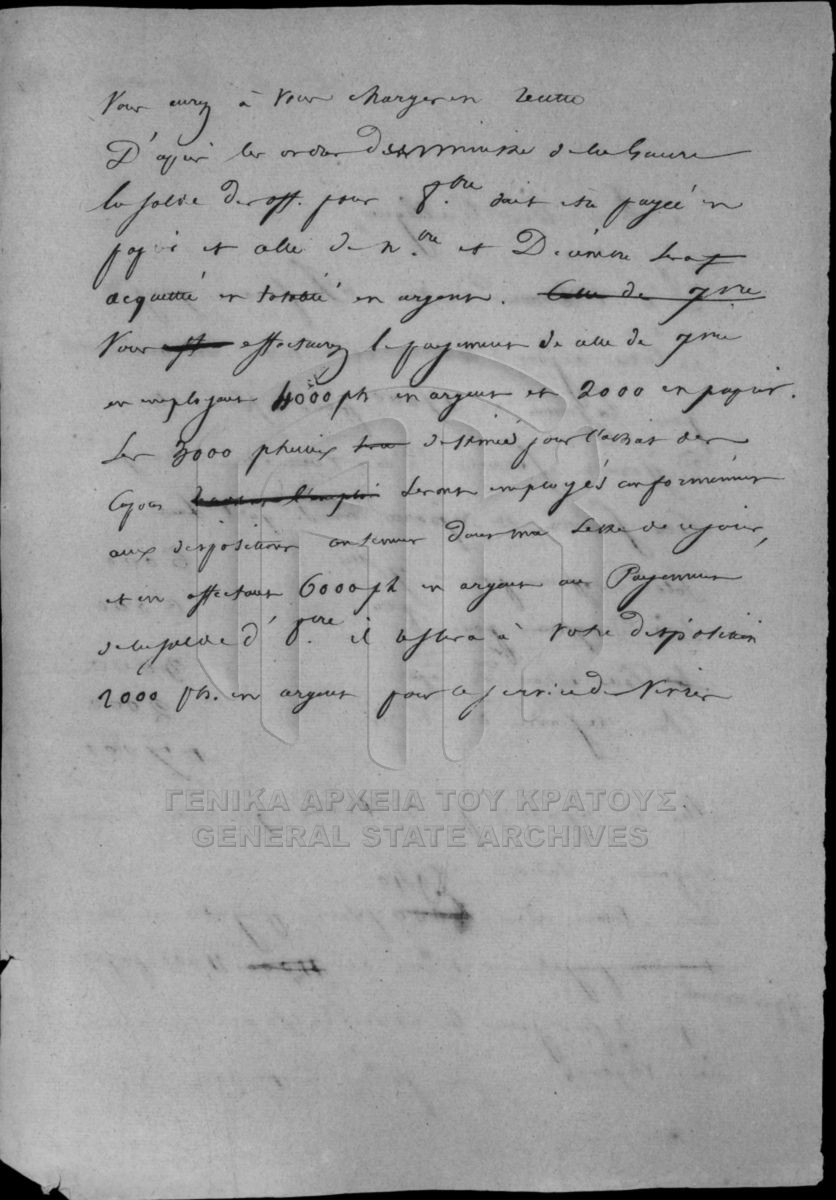 Vous aurez à vous charger en recette
D'après les ordres du ministre de la Guerre
la solde des off. pour 8.bre doit etre payée en
papier et celle de n.bre et Décembre sera
acquitté en totalité en argent. Celle de 7bre
Vous effectuerez le payement de celle de 7bre
en employant 4000 ph en argent et 2000 en papier.
Les 3000 phenix destiné pour l'achat des
seront employés conformément
aux dispositions contenues dans ma lettre de ce jour,
et en effectuant 6000 ph en argent au Payement
de la solde d' 8.bre il restera à votre disposition
2000 ph. en argent pour le service de Vivres
ΓΕΝΙΚΑ ΑΡΧΕΙΑ ΤΟΥ ΚΡΑΤΟΥΣ
GENERAL STATE ARCHIVES